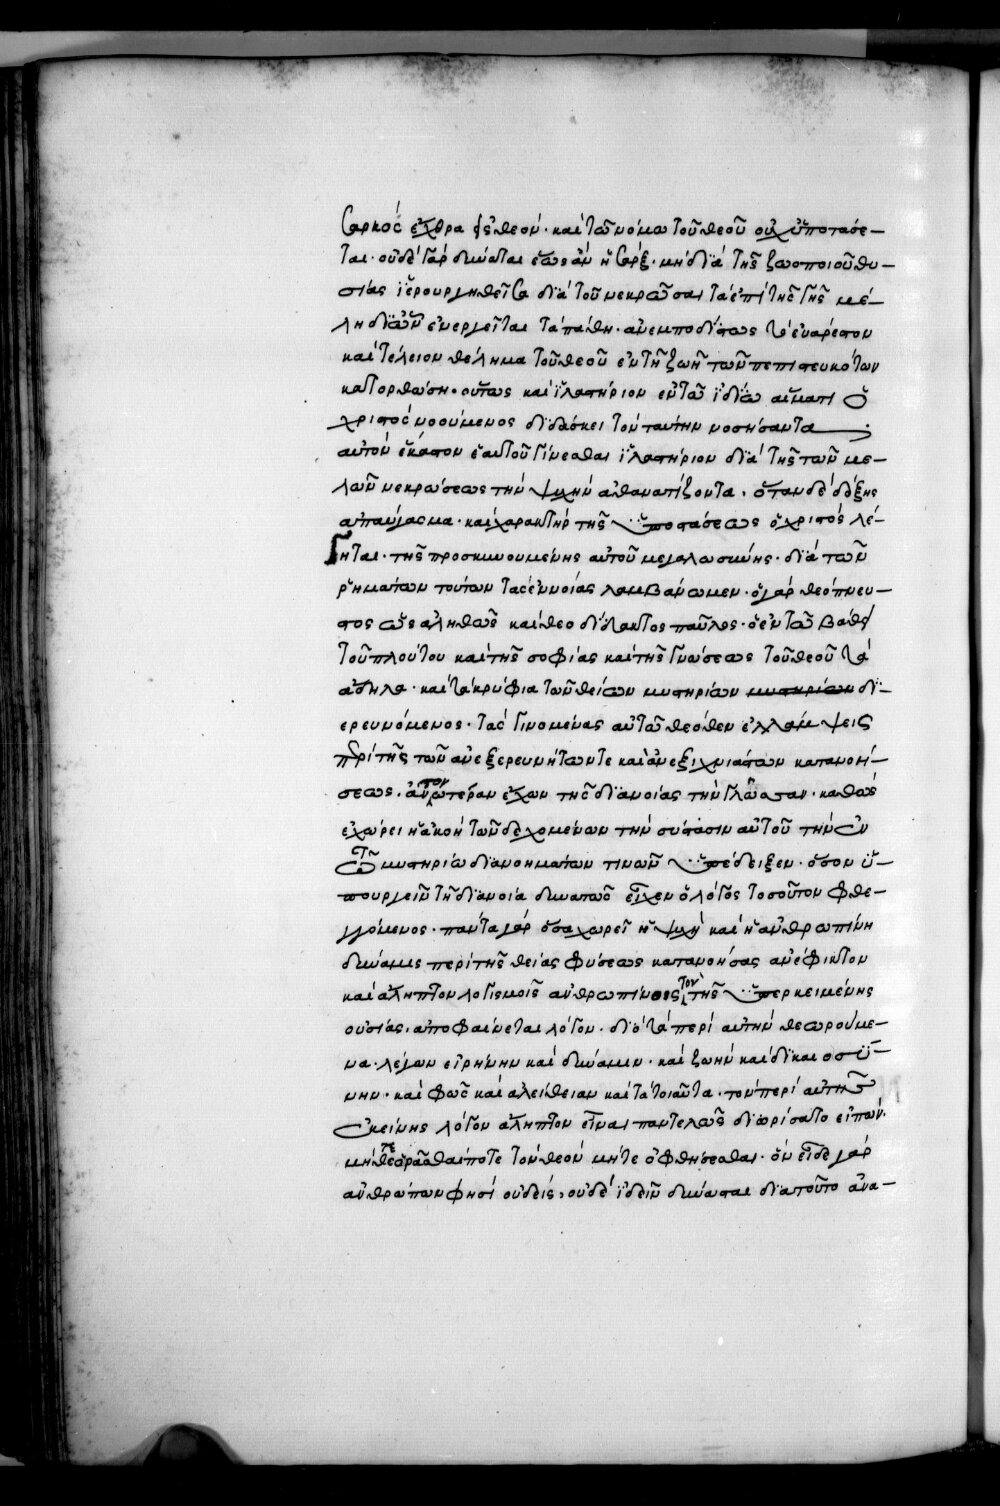 σαρκὸς ἔχθρα εἰς θεόν· καὶ τῶ νόμω τοῦ θεοῦ οὐχ ὑποτάσε–
ται· οὐδὲ γὰρ δύναται ἕως ἂν ἡ σάρξ· μὴ διὰ τῆς ζωοποιοῦ θυ–
σίας ἱερουργηθεῖσα διὰ τοῦ νεκρῶσαι τὰ ἐπὶ τῆς γῆς μέ–
λη δι ὧν ἐνεργεῖται τὰ πάθη· ἀνεμποδίστως τὸ εὐάρεστον
καὶ τέλειον θέλημα τοῦ θεοῦ ἐν τῆ ζωῆ τῶν πεπιστευκότων
κατορθώση· οὕτως καὶ ἱλαστήριον ἐν τῶ ἰδίω αἵματι ὁ
χριστὸς νοούμενος διδάσκει τὸν ταύτην νοσήσαντα
αὐτὸν ἕκαστον ἑαυτοῦ γίνεσθαι ἱλαστήριον διὰ τῆς τῶν με–
λῶν νεκρώσεως τὴν ψυχὴν ἀθανατίζοντα· ὅταν δὲ δόξης
ἀπαύγασμα· καὶ χαρακτὴρ τῆς ὑποστάσεως ὁ χριστὸς λέ–
γηται· τῆς προσκυνουμένης αὐτοῦ μεγαλωσύνης· διὰ τῶν
ῥημάτων τούτων τὰς ἐννοίας λαμβάνωμεν· ὁ γὰρ θεόπνευ–
στος ὡς ἀληθῶς καὶ θεοδίδακτος παῦλος· ὁ ἐν τῶ βάθει
τοῦ πλούτου καὶ τῆς σοφίας καὶ τῆς γνώσεως τοῦ θεοῦ τὰ
ἄδηλα· καὶ τὰ κρύφια τῶν θείων μυστηρίων μυστηρίων δι–
ερευνόμενος· τὰς γινομένας αὐτῶ θεόθεν ἐλλάμψεις
περὶ τῆς τῶν ἀνεξερευνήτων τε καὶ ἀνεξιχνιάστων κατανοή–
σεως· ἀτονωτέραν ἔχων τῆς διανοίας τὴν γλῶσσαν· καθὼς
ἐχώρει ἡ ἀκοὴ τῶν δεχομένων τὴν σύστασιν αὐτοῦ τὴν ἐν
τῶ μυστηρίω διανοημάτων τινῶν ὑπέδειξεν· ὅσον ὑ–
πουργεῖν τῆ διανοία δυνατῶς εἶχεν ὁ λόγος τοσοῦτον φθε–
γγόμενος· πάντα γὰρ ὅσα χωρεῖ ἡ ψυχὴ καὶ ἡ ἀνθρωπίνη
δύναμις περὶ τῆς θείας φύσεως κατανοήσας ἀνέφικτον
καὶ ἄληπτον λογισμοῖς ἀνθρωπίνοις τὸν τῆς ὑπερκειμένης
οὐσίας· ἀποφαίνεται λόγον· διὸ τὰ περὶ αὐτὴν θεωρούμε–
να· λέγων εἰρήνην καὶ δύναμιν· καὶ ζωὴν καὶ δικαιοσύ–
νην· καὶ φῶς καὶ ἀλείθειαν καὶ τὰ τοιαῦτα· τὸν περὶ αὐτῆς
ἐκείνης λόγον ἄληπτον εἶναι παντελῶς διωρίσατο εἰπὼν·
μήτε ἑορᾶσθαι ποτε τὸν θεὸν μήτε ὀφθήσεσθαι· ὃν εἶδε γὰρ
ἀνθρώπων φησὶ οὐδεὶς, οὐδὲ ἰδεῖν δύναται διατοῦτο ἀνα–